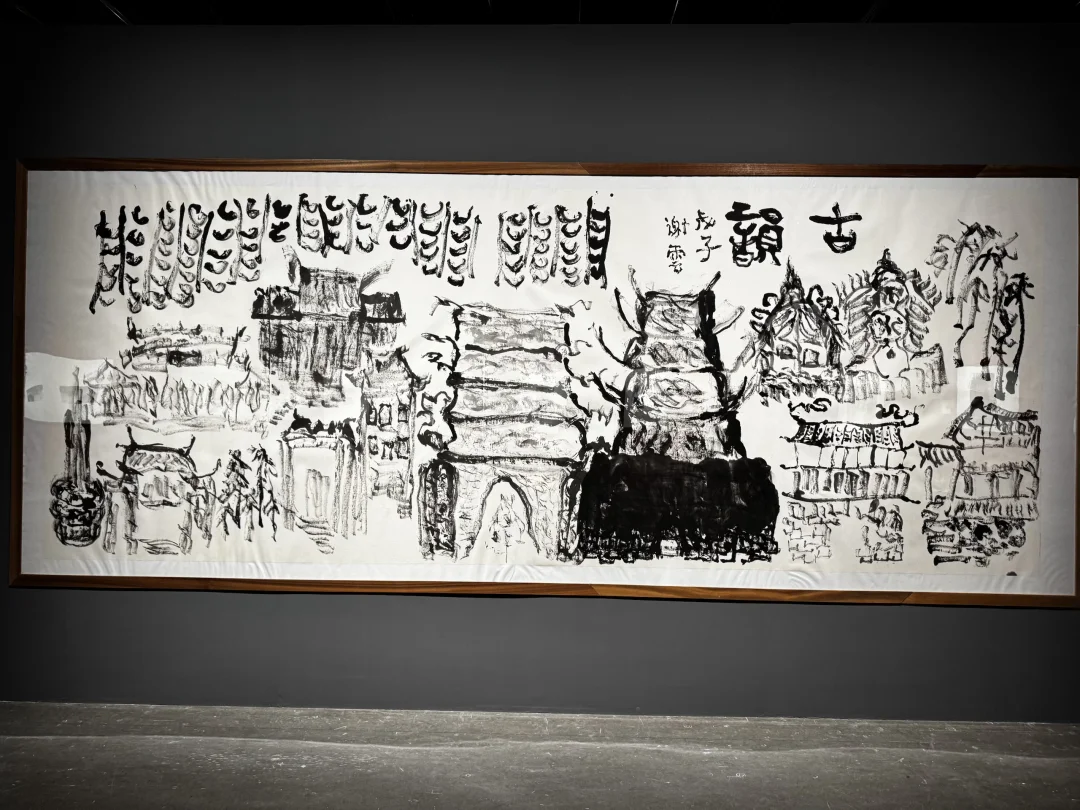 古韻
戊子
谢雲